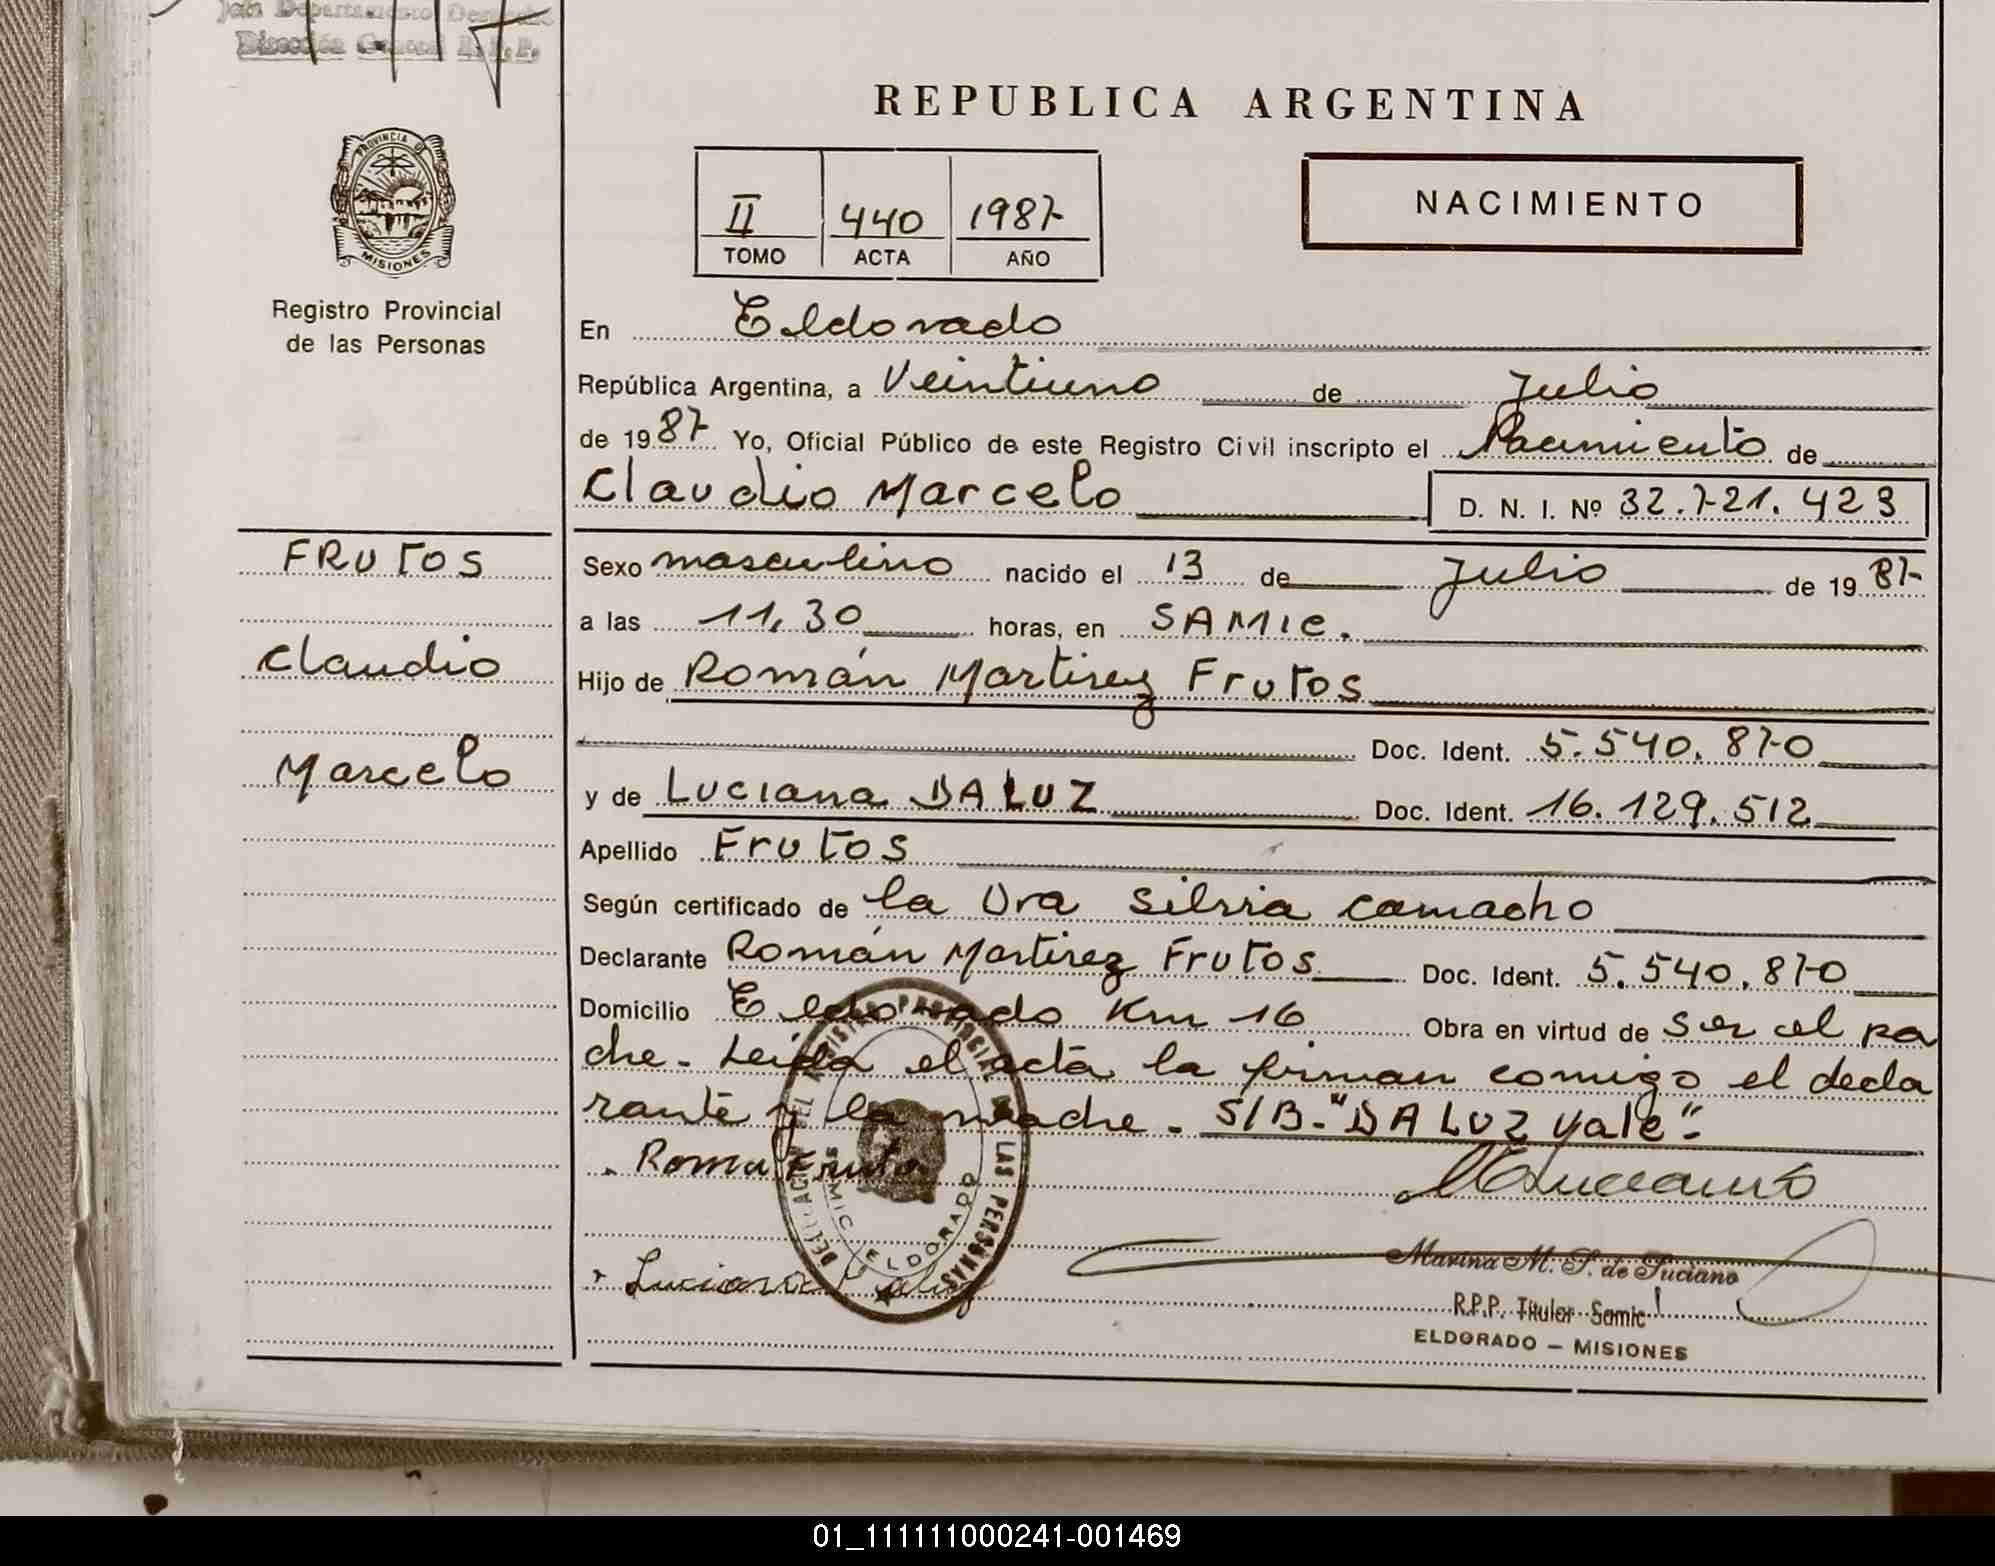 Jefe Departamento Despacho
Dirección General R.P.P.
PROVINCIA DE
MISIONES
Registro Provincial
de las Personas
FRUTOS
Claudio
Marcelo
REPUBLICA ARGENTINA
II 440 1987
TOMO ACTA AÑO
NACIMIENTO
En Eldorado
República Argentina, a Veintiuno de Julio
de 1987 Yo, Oficial Público de este Registro Civil inscripto el Nacimiento de
Claudio Marcelo D. N. I. Nº 32.721.423
Sexo masculino nacido el 13 de Julio de 1987
a las 11,30 horas, en SAMIC.
Hijo de Román Martirez Frutos
Doc. Ident. 5.540.870
y de Luciana DA LUZ Doc. Ident. 16.129.512
Apellido Frutos
Según certificado de la Dra Silvia Camacho
Declarante Román Martirez Frutos Doc. Ident. 5.540.870
Domicilio Eldorado Km 16 Obra en virtud de ser el pa
dre. Leida el acta la firman comigo el decla
rante y la madre. S/B. "DA LUZ Vale".
Roma Fruto
Luciana
DELEGACION DEL REGISTRO PROVINCIAL DE LAS PERSONAS
SAMIC ELDORADO
Marina M. S. de Luciano
R.P.P. Titular Samic
ELDORADO — MISIONES
01_111111000241-001469